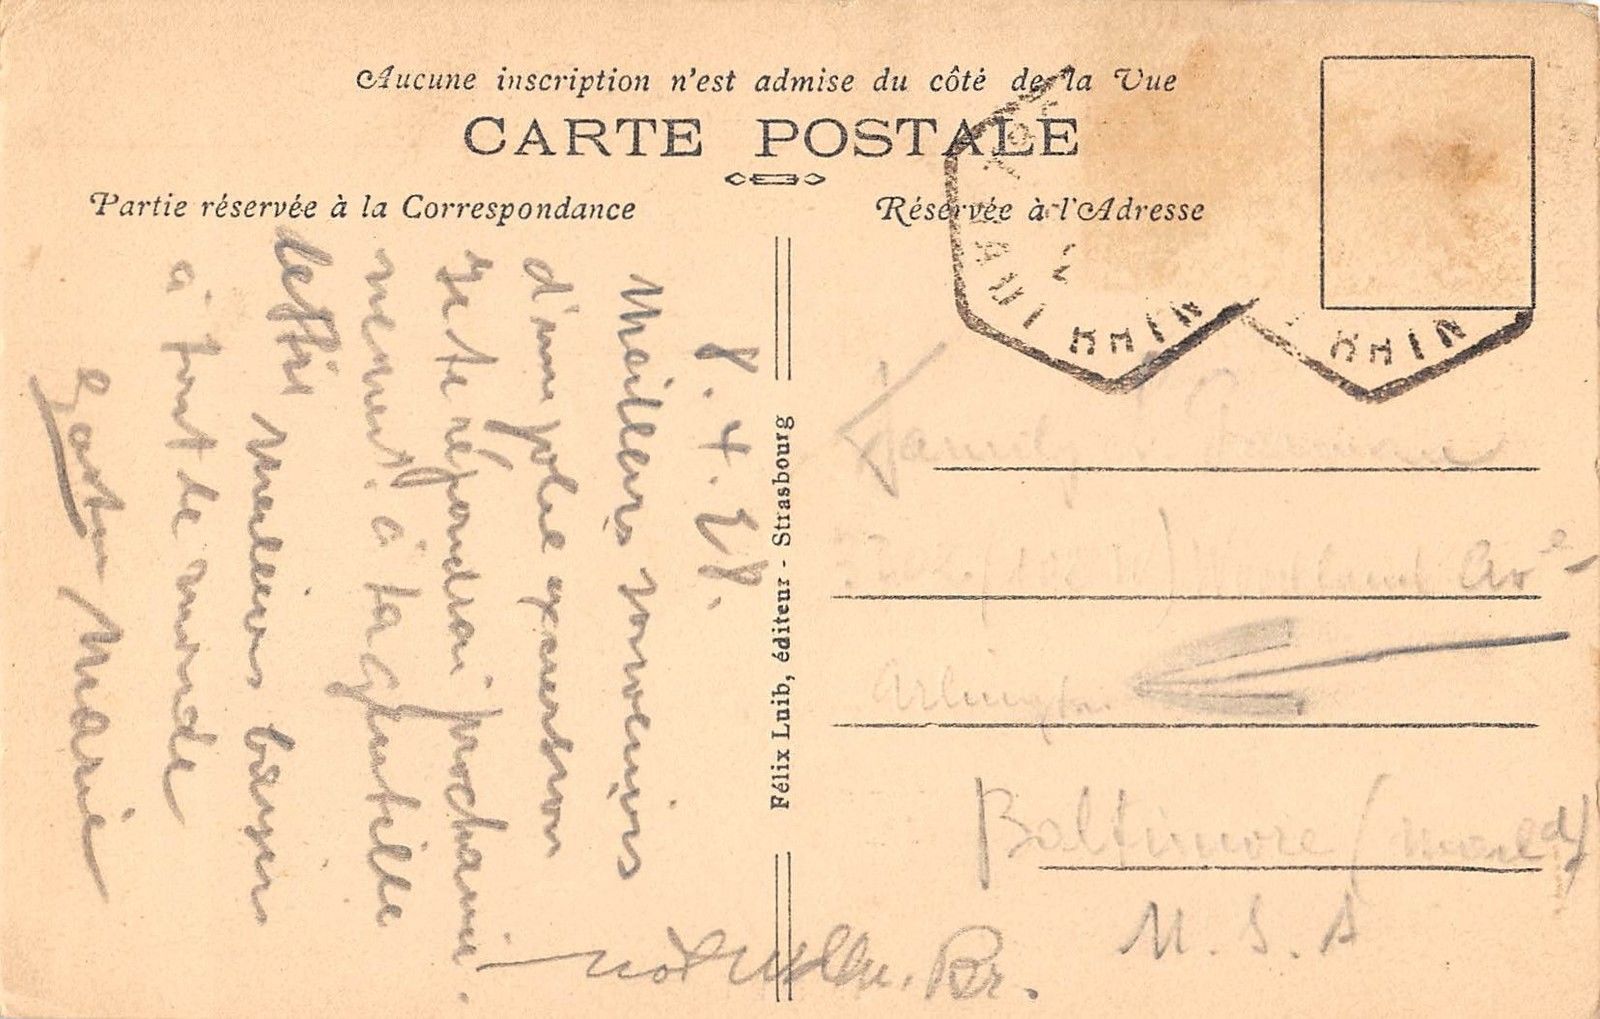 Aucune inscription n'est admise du côté de la Vue
CARTE POSTALE
Partie réservée à la Correspondance
Réservée à l'Adresse
8. 4. 28.
Meilleurs souvenirs
d'une jolie excursion
Je te répondrai prochaine-
ment à ta gentille
lettre Meilleurs baisers
à tout le monde
Gaston Marie
Félix Luib, éditeur - Strasbourg
RHIN
RHIN
Family
Ave
Arlington
Baltimore (Maryld)
U. S. A
Br.